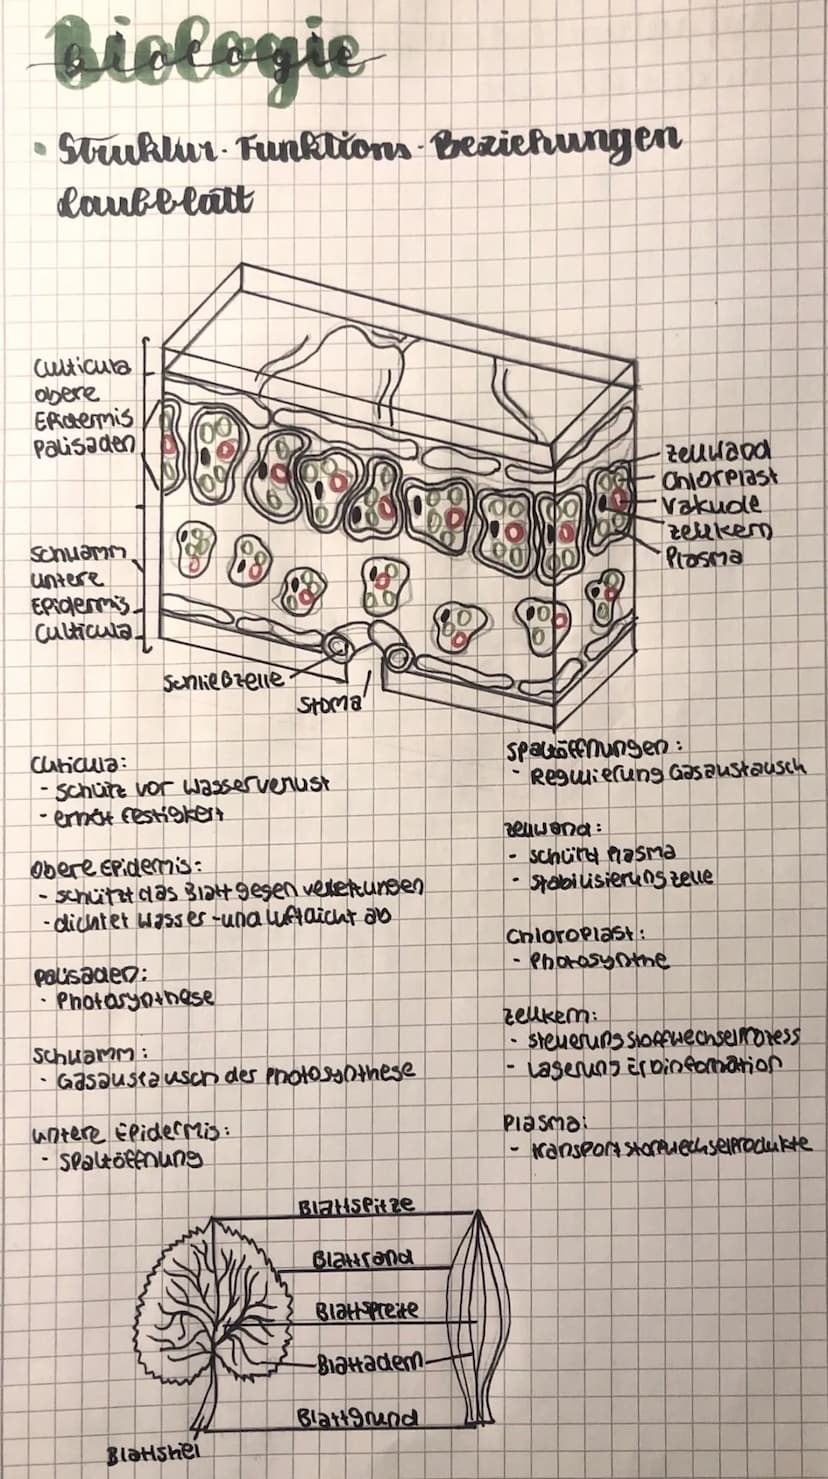 Biologie
• Struktur-Funktions-Beziehungen
Laubblatt
Culticula
obere
Epidermis
Palisaden
Schwamm
untere
Epidermis
Culticula
Schließzelle
Stoma
Zellwand
Chlorplast
Vakuole
Zellkern
Plasma
Cuticula:
- schütz vor Wasserverlust
- erhöt Festigkeit
obere Epidemis:
- schützt das Blatt gegen verletzungen
- dichtet Wasser-und luftdicht ab
Palisaden:
- Photosynthese
Schwamm:
- Gasaustausch der Photosynthese
untere Epidermis:
- Spaltöffnung
Spaltöffnungen:
- Regulierung Gasaustausch
Zellwand:
- schützt Plasma
- Stabilisierung Zelle
Chloroplast:
- Photosynthe
Zellkern:
- Steuerung Stoffwechselprozess
- Lagerung Erbinformation
Plasma:
- Transport Stoffwechselprodukte
Blattspitze
Blattrand
Blattspreite
Blattadern
Blattgrund
Blattstiel